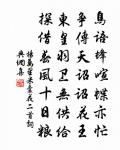 鳥語蜂喧蝶亦忙
爭傳天語詔花王
東皇羽衛無供給
探借春風十日糧
楊萬里米囊花二首詞
典網集